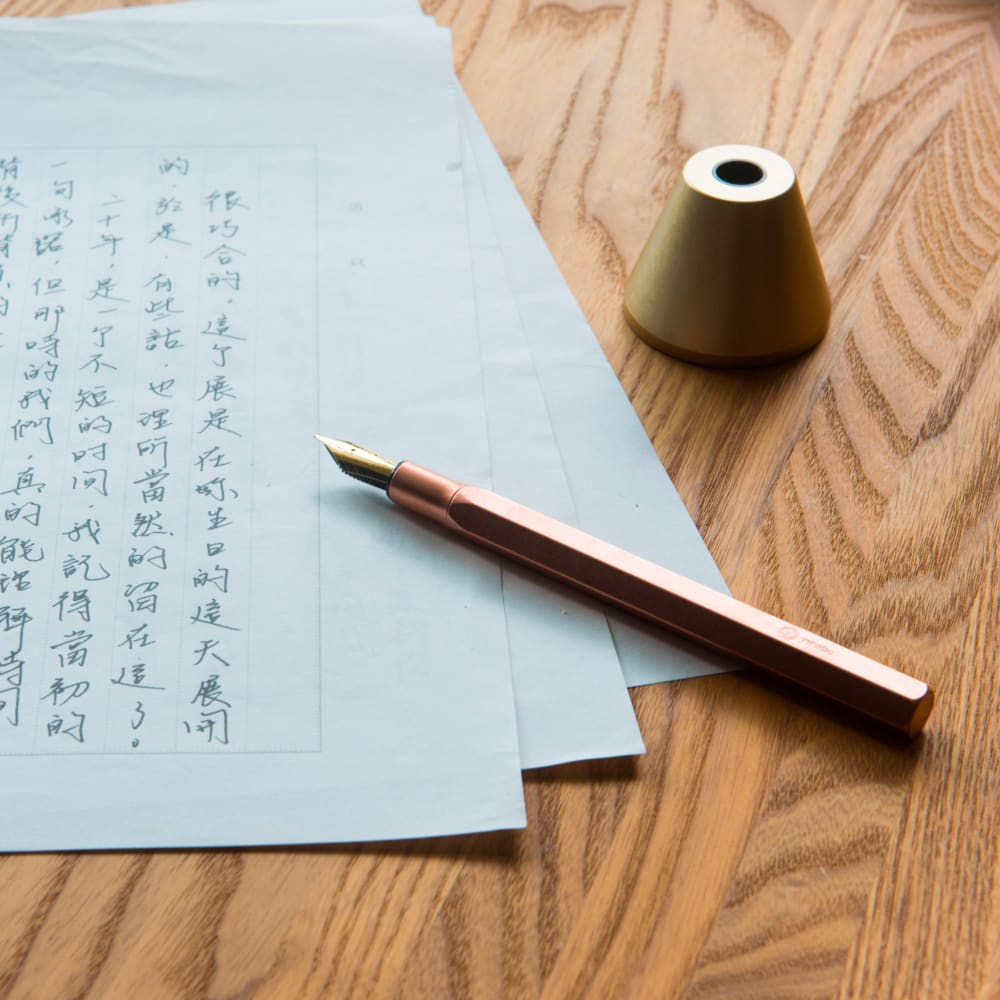 很巧合的，這个展是在妳生日的這天展開
的，於是，有些話，也理所當然的留在這了。
二十年，是一个不短的时间，我記得當初的
一句承諾，但那時的我們，真的能理解時间
背後所背負的
ystudio